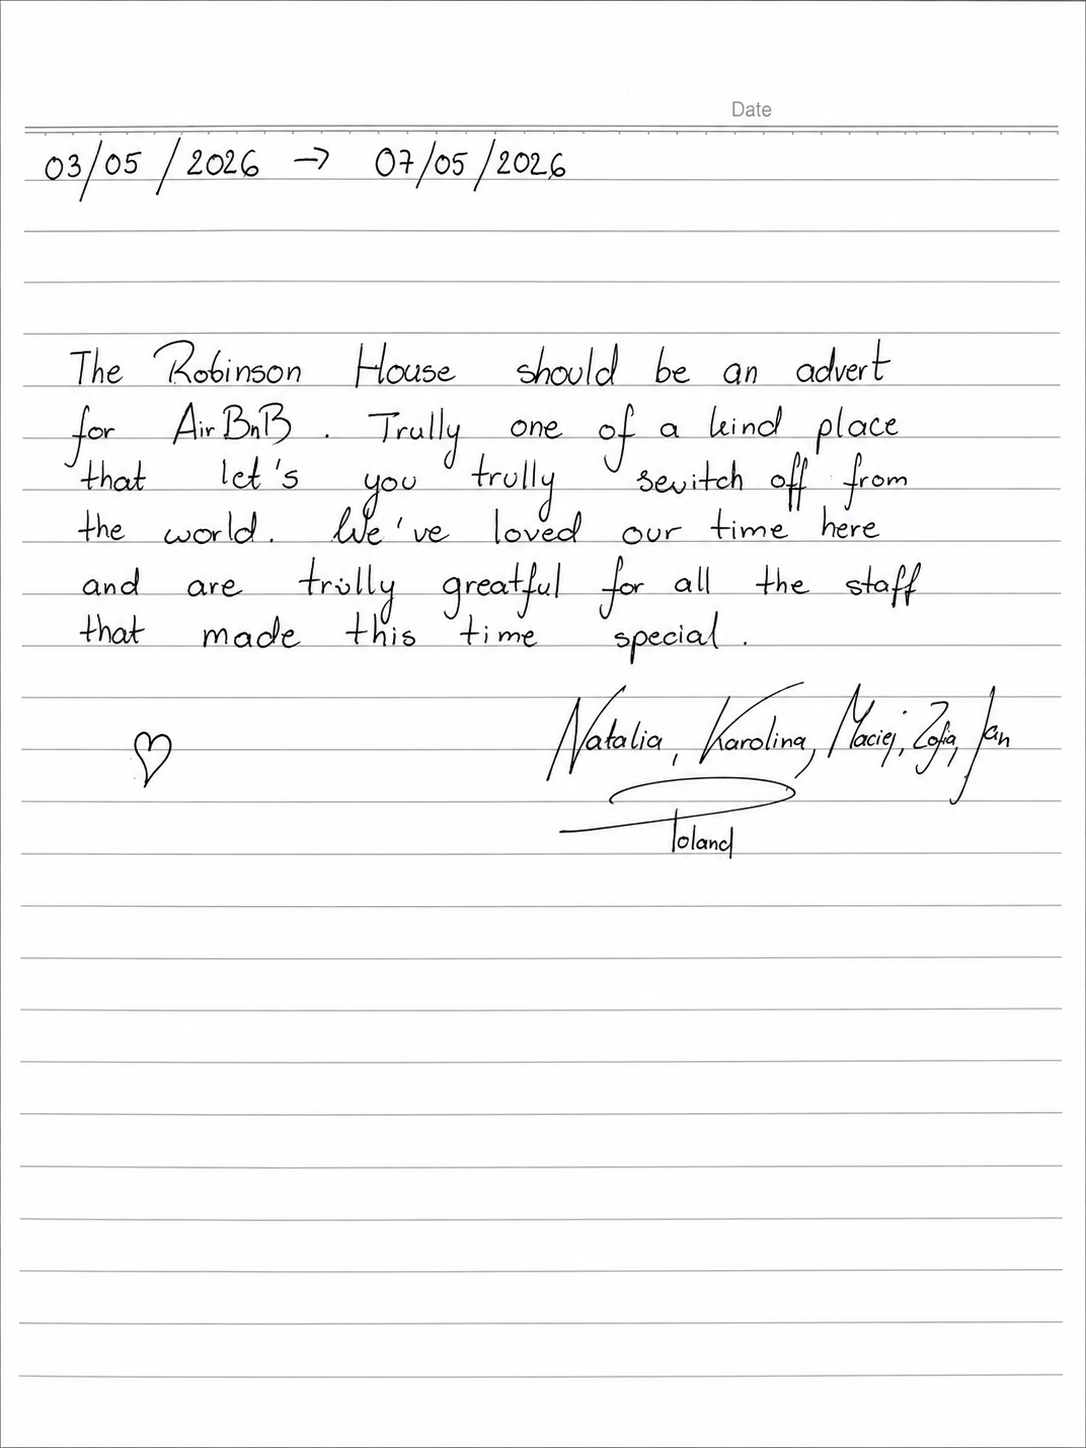 Date
03/05/2026 → 07/05/2026
The Robinson House should be an advert
for AirBnB. Trully one of a kind place
that let's you trully switch off from
the world. We've loved our time here
and are trully greatful for all the staff
that made this time special.
♡ Natalia, Karolina, Maciej, Zofia, Jan
Poland